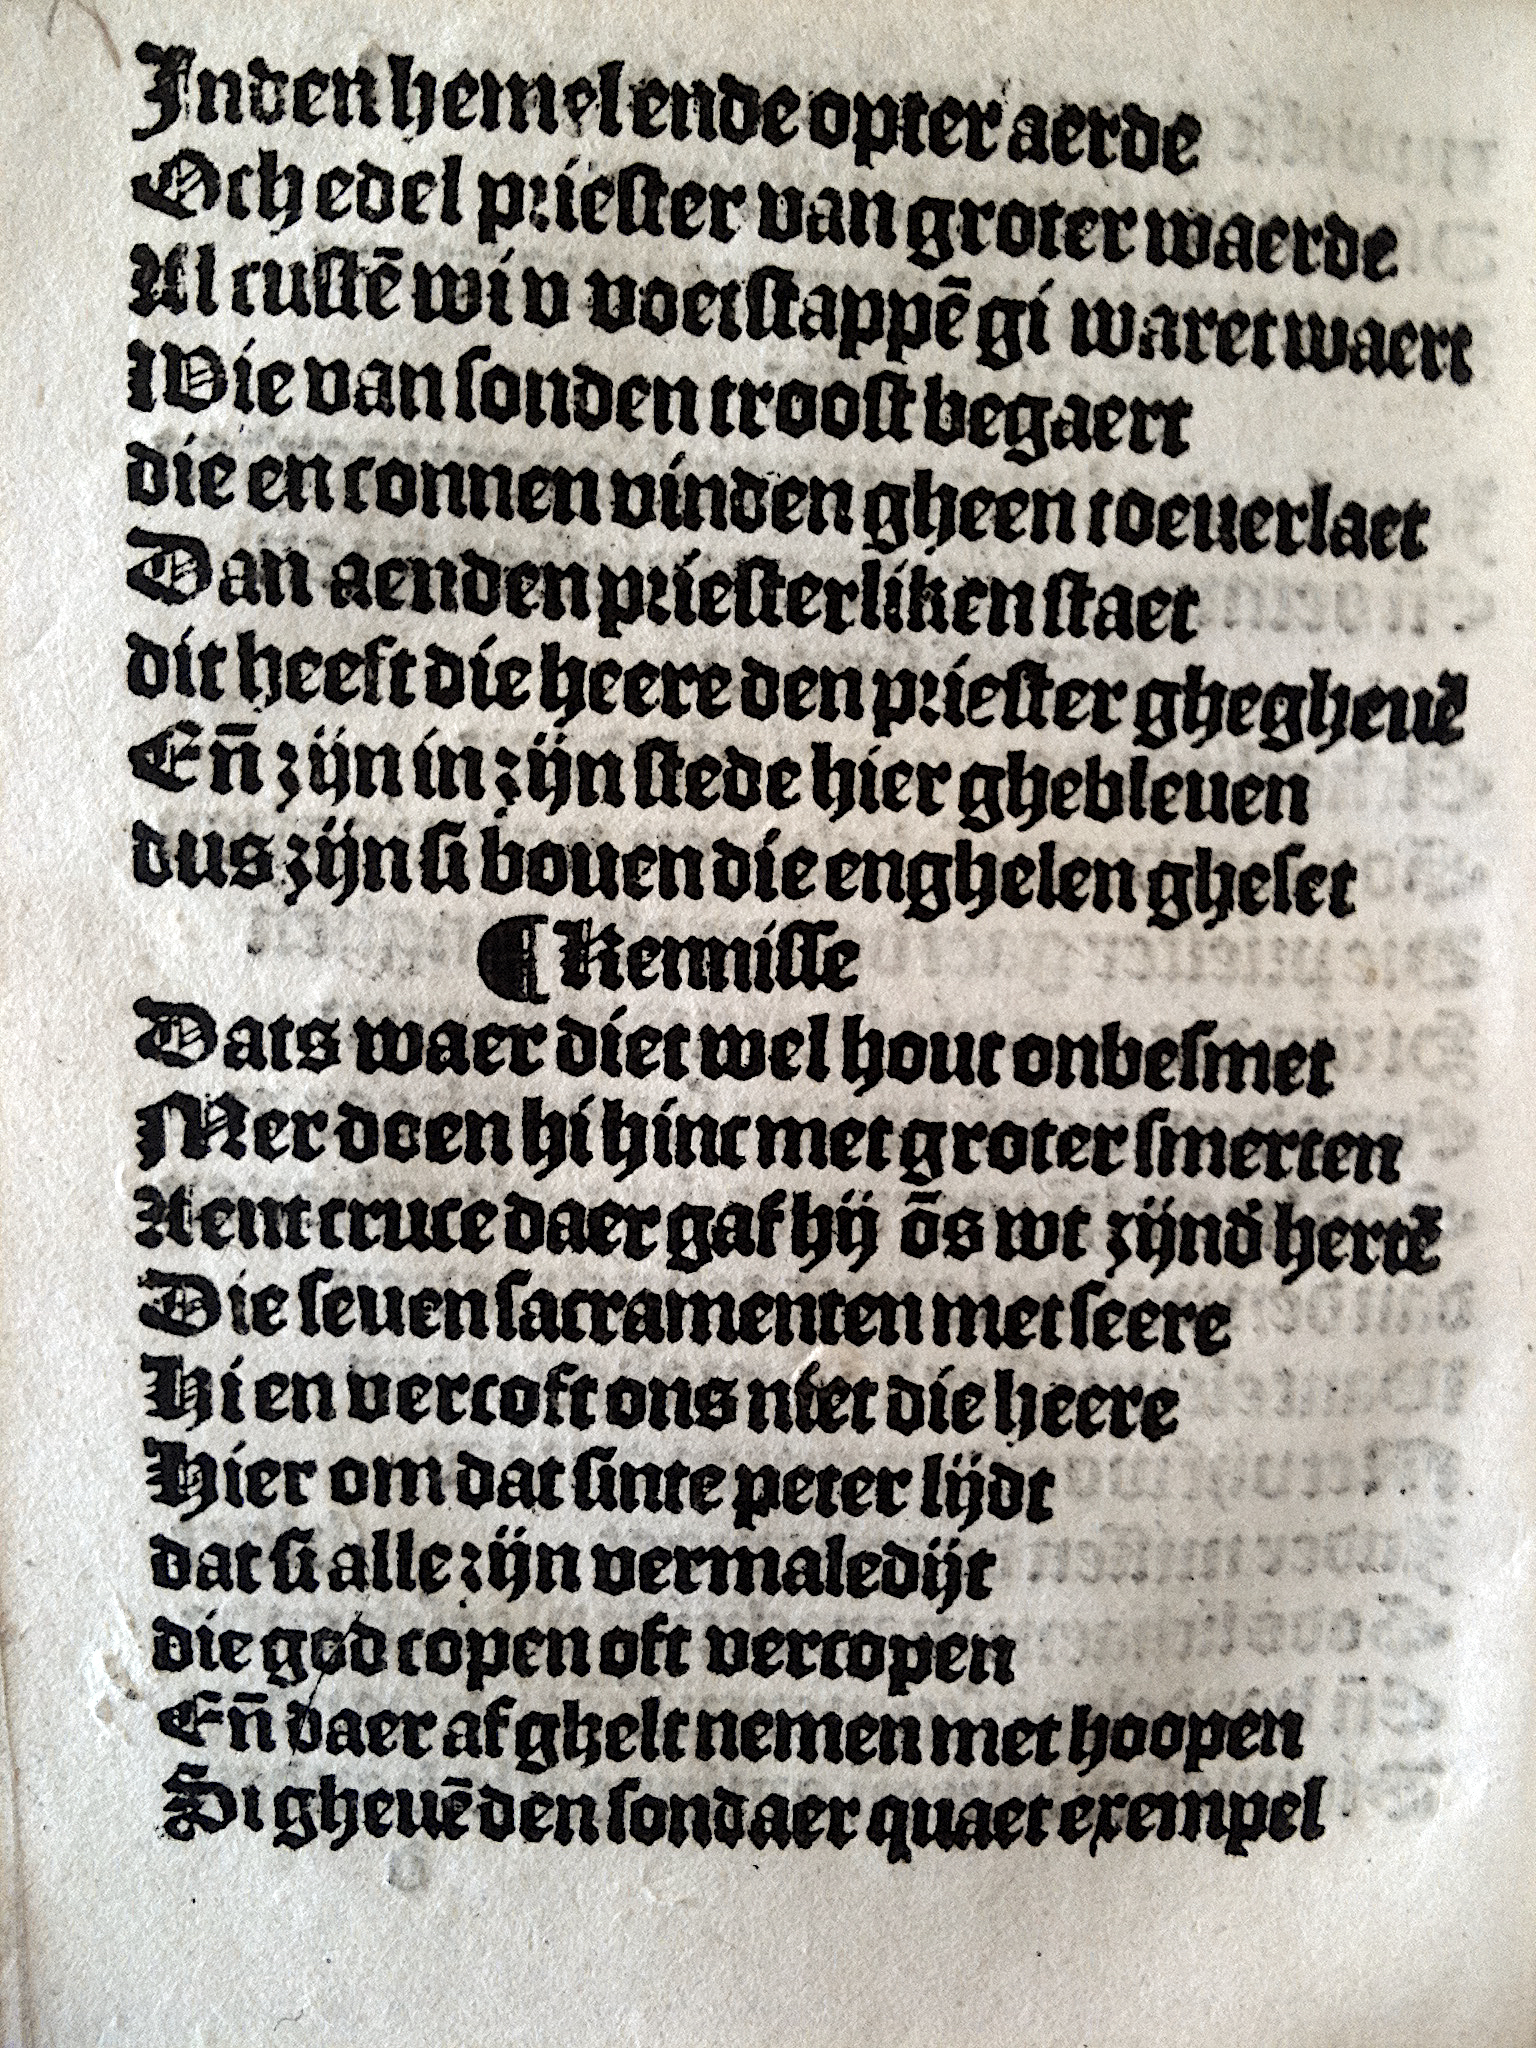 Inden hemel ende opter aerde
Och edel priester van groter waerde
Al custē wi v voetstappē gi waret waert
Wie van sonden troost begaert
die en connen vinden gheen toeuerlaet
Dan aenden priesterliken staet
dit heeft die heere den priester ghegheuē
Eñ zijn in zijn stede hier ghebleuen
dus zijn si bouen die enghelen gheset
¶ Kennisse
Dats waer diet wel hout onbesmet
Mer doen hi hinc met groter smerten
Aent cruce daer gaf hij ōs wt zijnd hertē
Die seuen sacramenten met seere
Hi en vercoft ons niet die heere
Hier om dat sinte peter lijdt
dat si alle zijn vermaledijt
die god copen oft vercopen
Eñ daer af ghelt nemen met hoopen
Si gheuē den sondaer quaet exempel